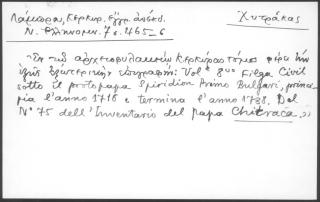 Λάμπρος, Κερκυρ. έγγρ. ανέκδ.
Χυτράκας
Ν. Ελληνομν. 7ε. 465-6
"Εκ του αρχειοφυλακείου Κερκύρας τόμος φέρει την
εξής εξωτερικήν επιγραφήν: Vol.e 8vo Filza Civil
sotto il protopapa Spiridion Primo Bulgari, princi-
pia l'anno 1716 e termina l'anno 1738. Del
N° 75 dell'Inventario del papa Chitraca.»